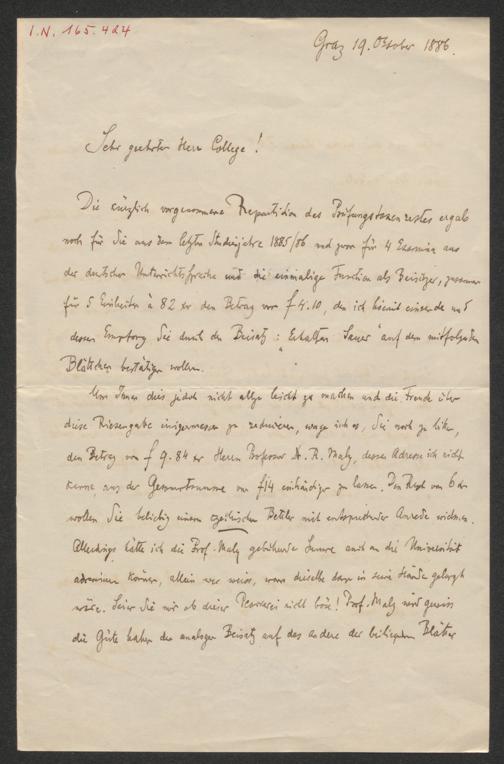 I.N. 165.424
Graz 19. October 1886.
Sehr geehrter Herr College!
Die kürzlich vorgenommene Repartition des Prüfungstaxenrestes ergab
noch für Sie aus dem letzten Studienjahre 1885/86 und zwar für 4 Examina aus
der deutschen Unterrichtssprache und die einmalige Function als Beisitzer, zusammen
für 5 Einheiten à 82 xr den Betrag von f 4.10, den ich hiemit einsende und
dessen Empfang Sie durch den Beisatz: „Erhalten Sauer" auf dem mitfolgenden
Blättchen bestätigen wollen.
Um Ihnen dies jedoch nicht allzu leicht zu machen und die Freude über
diese Riesengabe einigermassen zu reduciren, wage ich es, Sie noch zu bitten,
den Betrag von f 9.84 xr Herrn Professor Dr. R. Maly, dessen Adresse ich nicht
kenne aus der Gesammtsumme von f 14 einhändigen zu lassen. Den Rest von 6 xr
wollen Sie beliebig einem czechischen Bettler mit entsprechender Anrede widmen.
Allerdings hätte ich die Prof. Maly gebührende Summe auch an die Universität
adressiren können, allein wer weiss, wann dieselbe dann in seine Hände gelangt
wäre. Seien Sie mir ob dieser Plackerei nicht böse! Prof. Maly wird gewiss
die Güte haben den analogen Beisatz auf das andere der beiliegenden Blätter